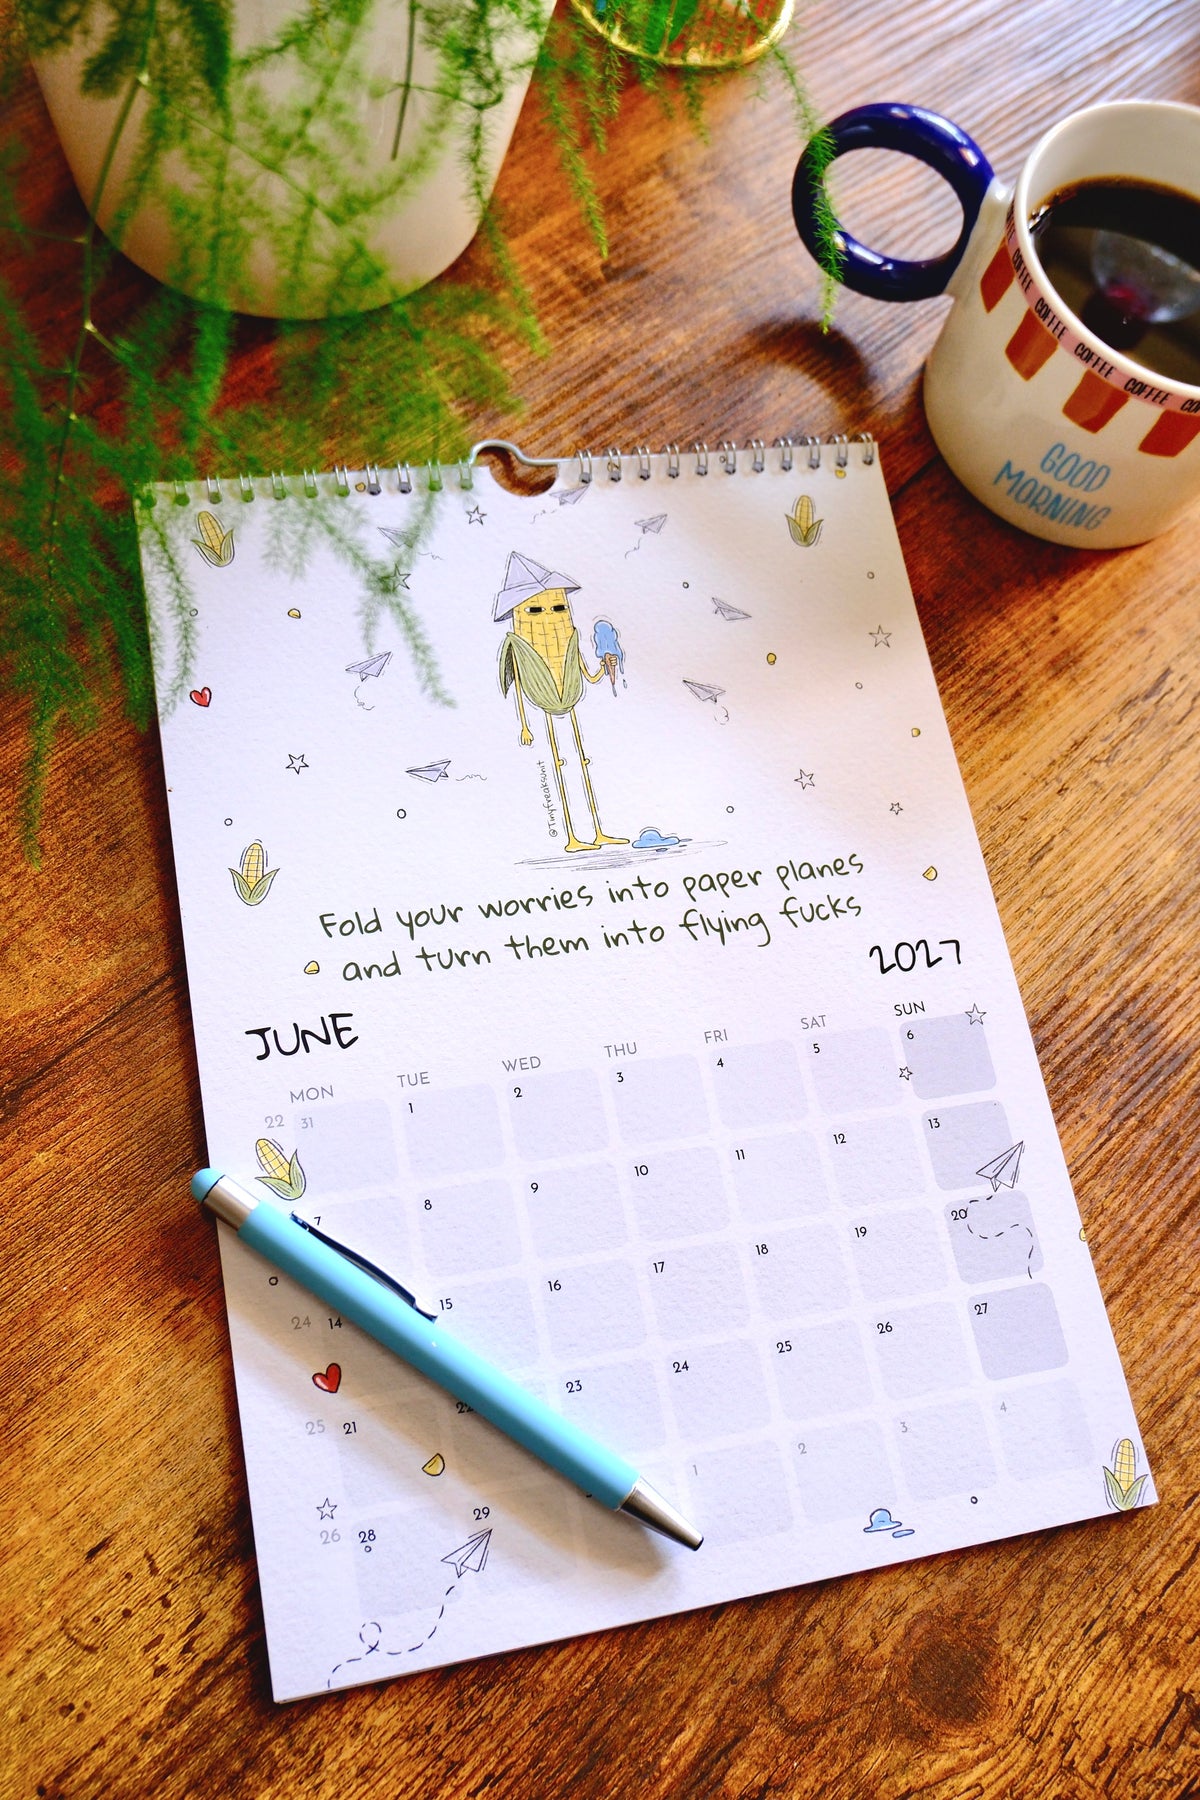 COFFEE COFFEE COFFEE COFFEE
GOOD
MORNING
@Tinyfreakschit
Fold your worries into paper planes
and turn them into flying fucks
2027
JUNE
MON TUE WED THU FRI SAT SUN
22 31 1 2 3 4 5 6
7 8 9 10 11 12 13
24 14 15 16 17 18 19 20
25 21 22 23 24 25 26 27
26 28 29 1 2 3 4